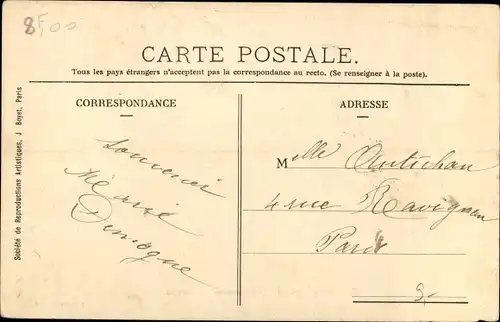 8F00
CARTE POSTALE.
Tous les pays étrangers n'acceptent pas la correspondance au recto. (Se renseigner à la poste).
CORRESPONDANCE
Souvenir
Demogue
ADRESSE
Melle Antichan
4 rue Ravignan
Paris
9-
Société de Reproductions Artistiques, J Boyet, Paris